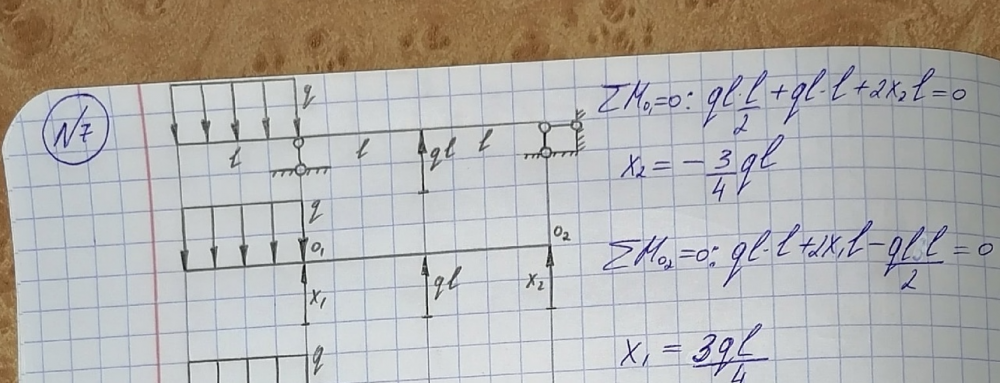 N7
q
l l ql l
q
O₁ O₂
X₁ ql X₂
q
ΣM₀₁=0: ql·l/2 + ql·l + 2X₂l = 0
X₂ = - 3/4 ql
ΣM₀₂=0: ql·l + 2X₁l - ql·l/2 = 0
X₁ = 3ql/4